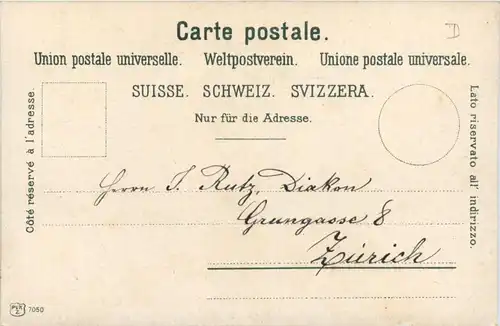 Carte postale.
D
Union postale universelle. Weltpostverein. Unione postale universale.
SUISSE. SCHWEIZ. SVIZZERA.
Nur für die Adresse.
Côté réservé à l'adresse.
Lato riservato all' indirizzo.
Herrn J. Rutz, Diakon
Grungasse 8
Zürich
7050